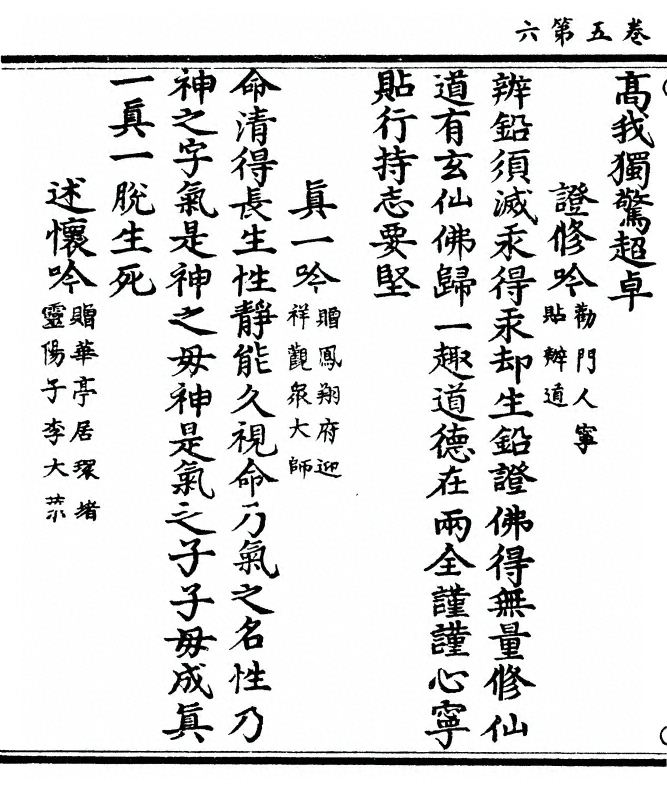 卷五第六
高我獨驚超卓
證修吟
勸門人寧
貼辦道
辨鉛須滅汞得汞却生鉛證佛得無量修仙
道有玄仙佛歸一趣道德在兩全謹謹心寧
貼行持志要堅
眞一吟
贈鳳翔府迎
祥觀衆大師
命清得長生性靜能久視命乃氣之名性乃
神之字氣是神之母神是氣之子子母成眞
一眞一脫生死
述懷吟
贈華亭居環堵
靈陽子李大